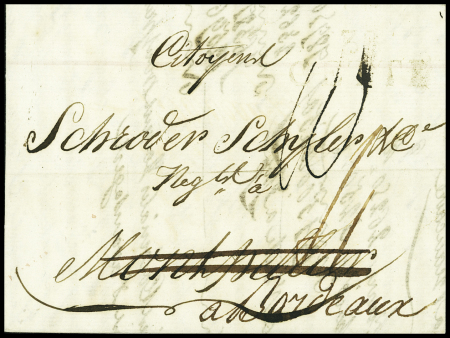 Citoyens
Schroder Schyler & Ce
Negts à
Montpellier
a Bordeaux